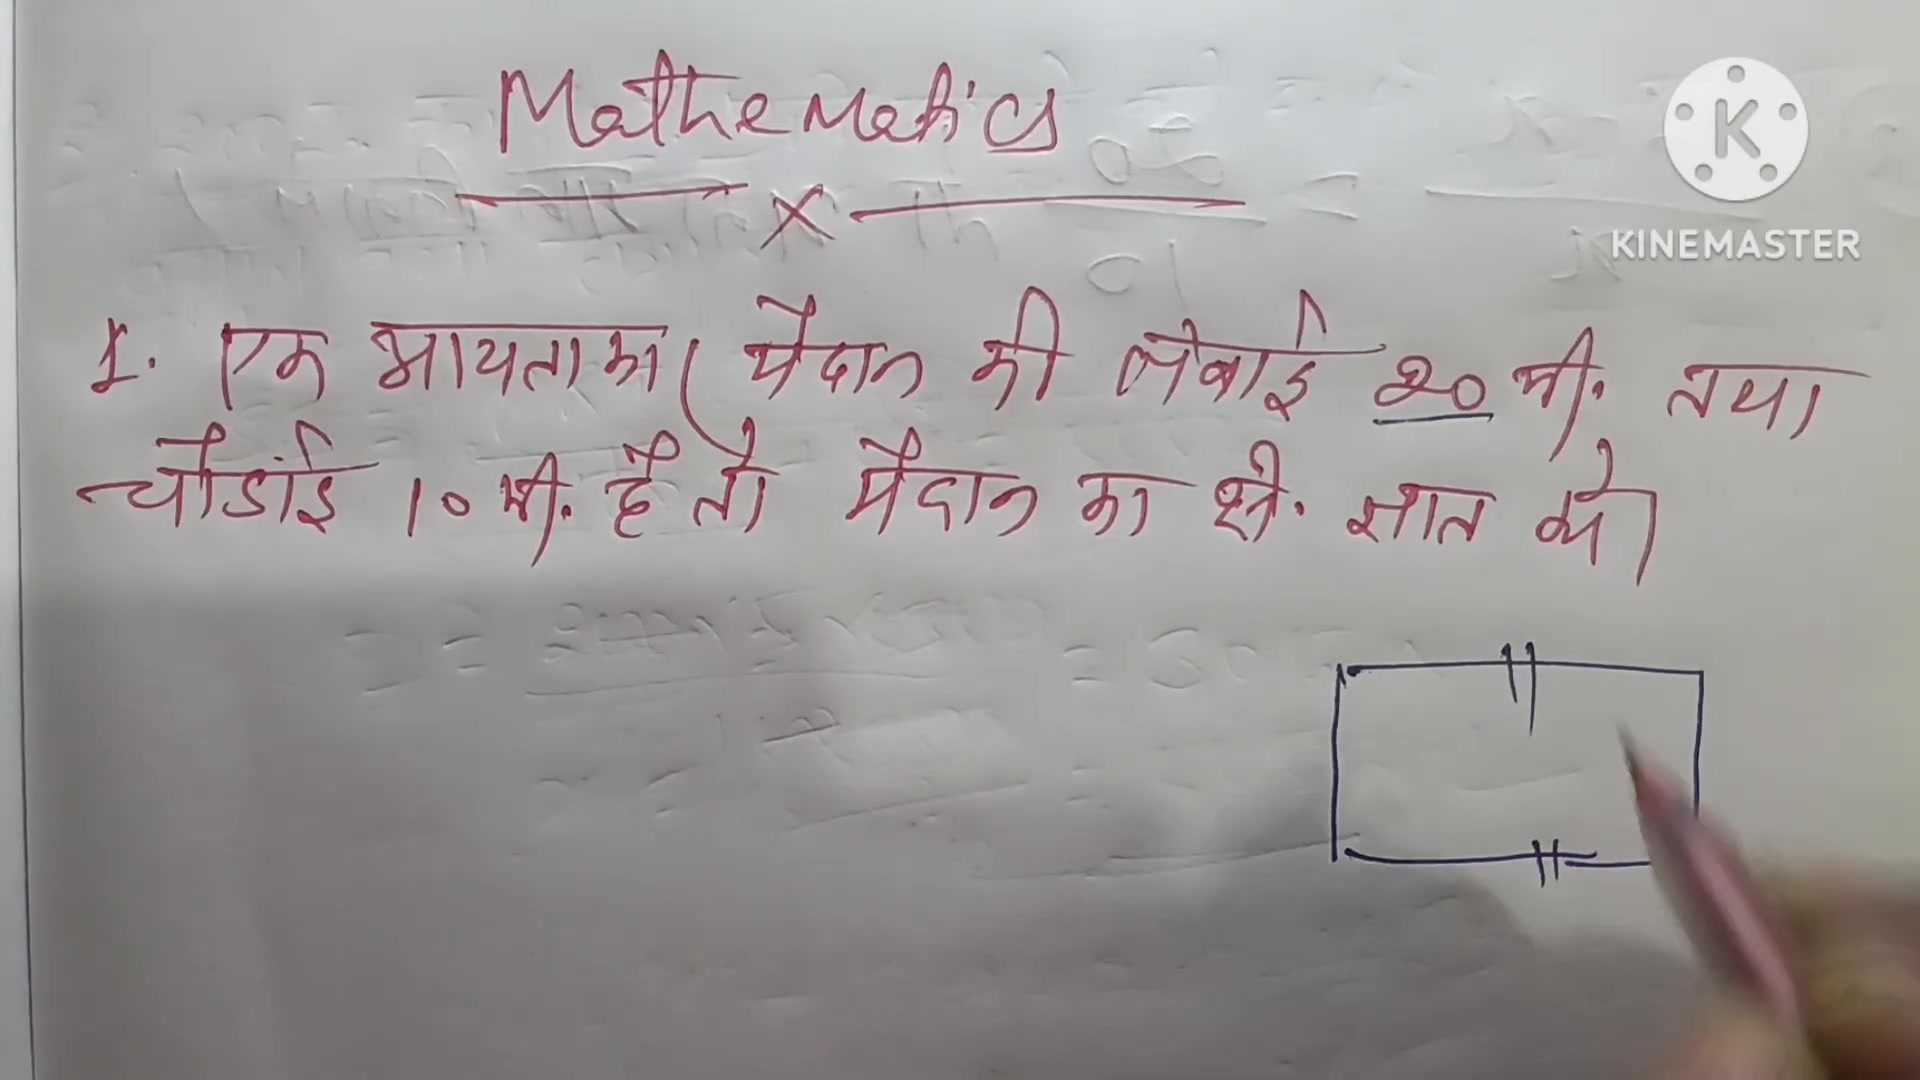 Mathematics
x
1. एक आयताकार मैदान की लंबाई 20 मी. तथा
चौड़ाई 10 मी. है तो मैदान का क्षे. ज्ञात करो
K
KINEMASTER